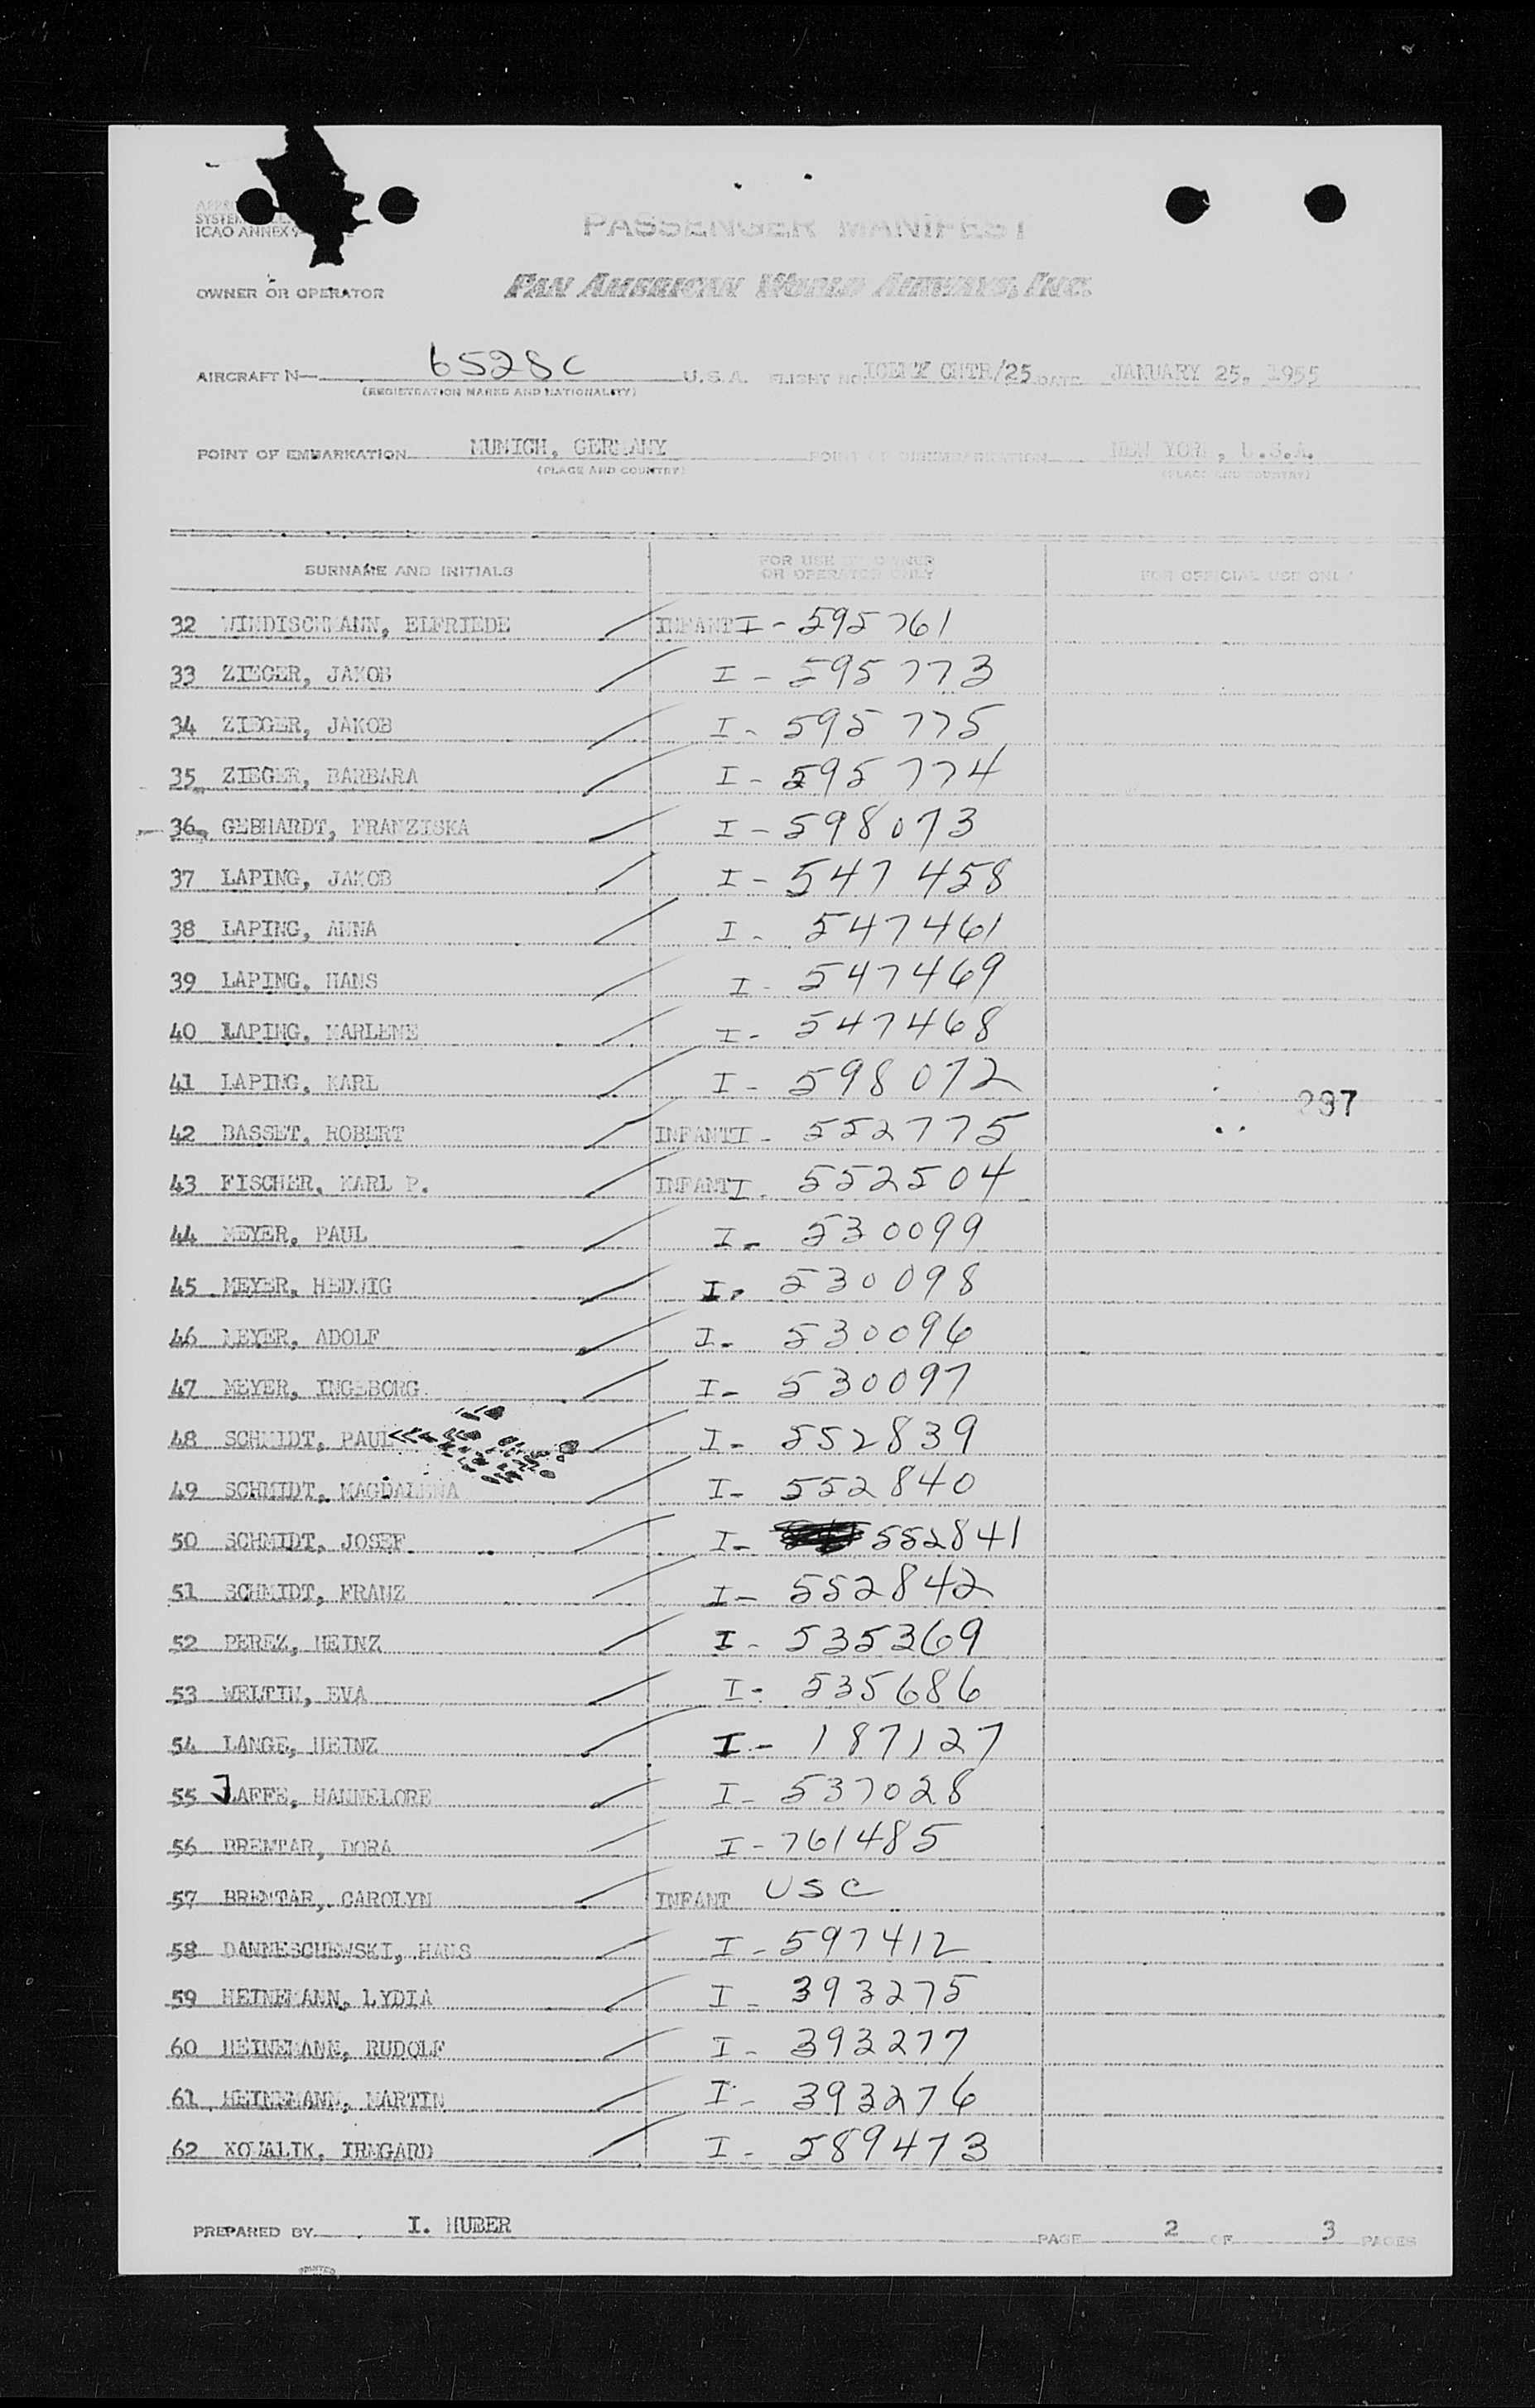 SYSTEM
ICAO ANNEX 9
PASSENGER MANIFEST
OWNER OR OPERATOR PAN AMERICAN WORLD AIRWAYS, INC.
AIRCRAFT N— 6528C U.S.A. FLIGHT NO. CHTR/25 DATE JANUARY 25, 1955
(REGISTRATION MARKS AND NATIONALITY)
POINT OF EMBARKATION MUNICH, GERMANY POINT OF DISEMBARKATION NEW YORK, U.S.A.
(PLACE AND COUNTRY) (PLACE AND COUNTRY)
SURNAME AND INITIALS FOR USE BY OWNER OR OPERATOR ONLY FOR OFFICIAL USE ONLY
32 WINDISCHMANN, ELFRIEDE INFANT I - 595761
33 ZIEGER, JAKOB I - 595773
34 ZIEGER, JAKOB I - 595775
35 ZIEGER, BARBARA I - 595774
36 GEBHARDT, FRANZISKA I - 598073
37 LAPING, JAKOB I - 547458
38 LAPING, ANNA I - 547461
39 LAPING, HANS I - 547469
40 LAPING, MARLENE I - 547468
41 LAPING, KARL I - 598072
297
42 BASSET, ROBERT INFANT I - 552775
43 FISCHER, KARL P. INFANT I - 552504
44 MEYER, PAUL I - 530099
45 MEYER, HEDWIG I - 530098
46 MEYER, ADOLF I - 530096
47 MEYER, INGEBORG I - 530097
48 SCHMIDT, PAUL I - 552839
49 SCHMIDT, MAGDALENA I - 552840
50 SCHMIDT, JOSEF I - 552841
51 SCHMIDT, FRANZ I - 552842
52 PEREZ, HEINZ I - 535369
53 WELTIN, EVA I - 535686
54 LANGE, HEINZ I - 187127
55 JAFFE, HANNELORE I - 537028
56 BRENTAR, DORA I - 761485
57 BRENTAR, CAROLYN INFANT USC
58 DANNESCHEWSKI, HANS I - 597412
59 HEINEMANN, LYDIA I - 393275
60 HEINEMANN, RUDOLF I - 393277
61 HEINEMANN, MARTIN I - 393276
62 KOWALIK, IRMGARD I - 589473
PREPARED BY I. HUBER PAGE 2 OF 3 PAGES